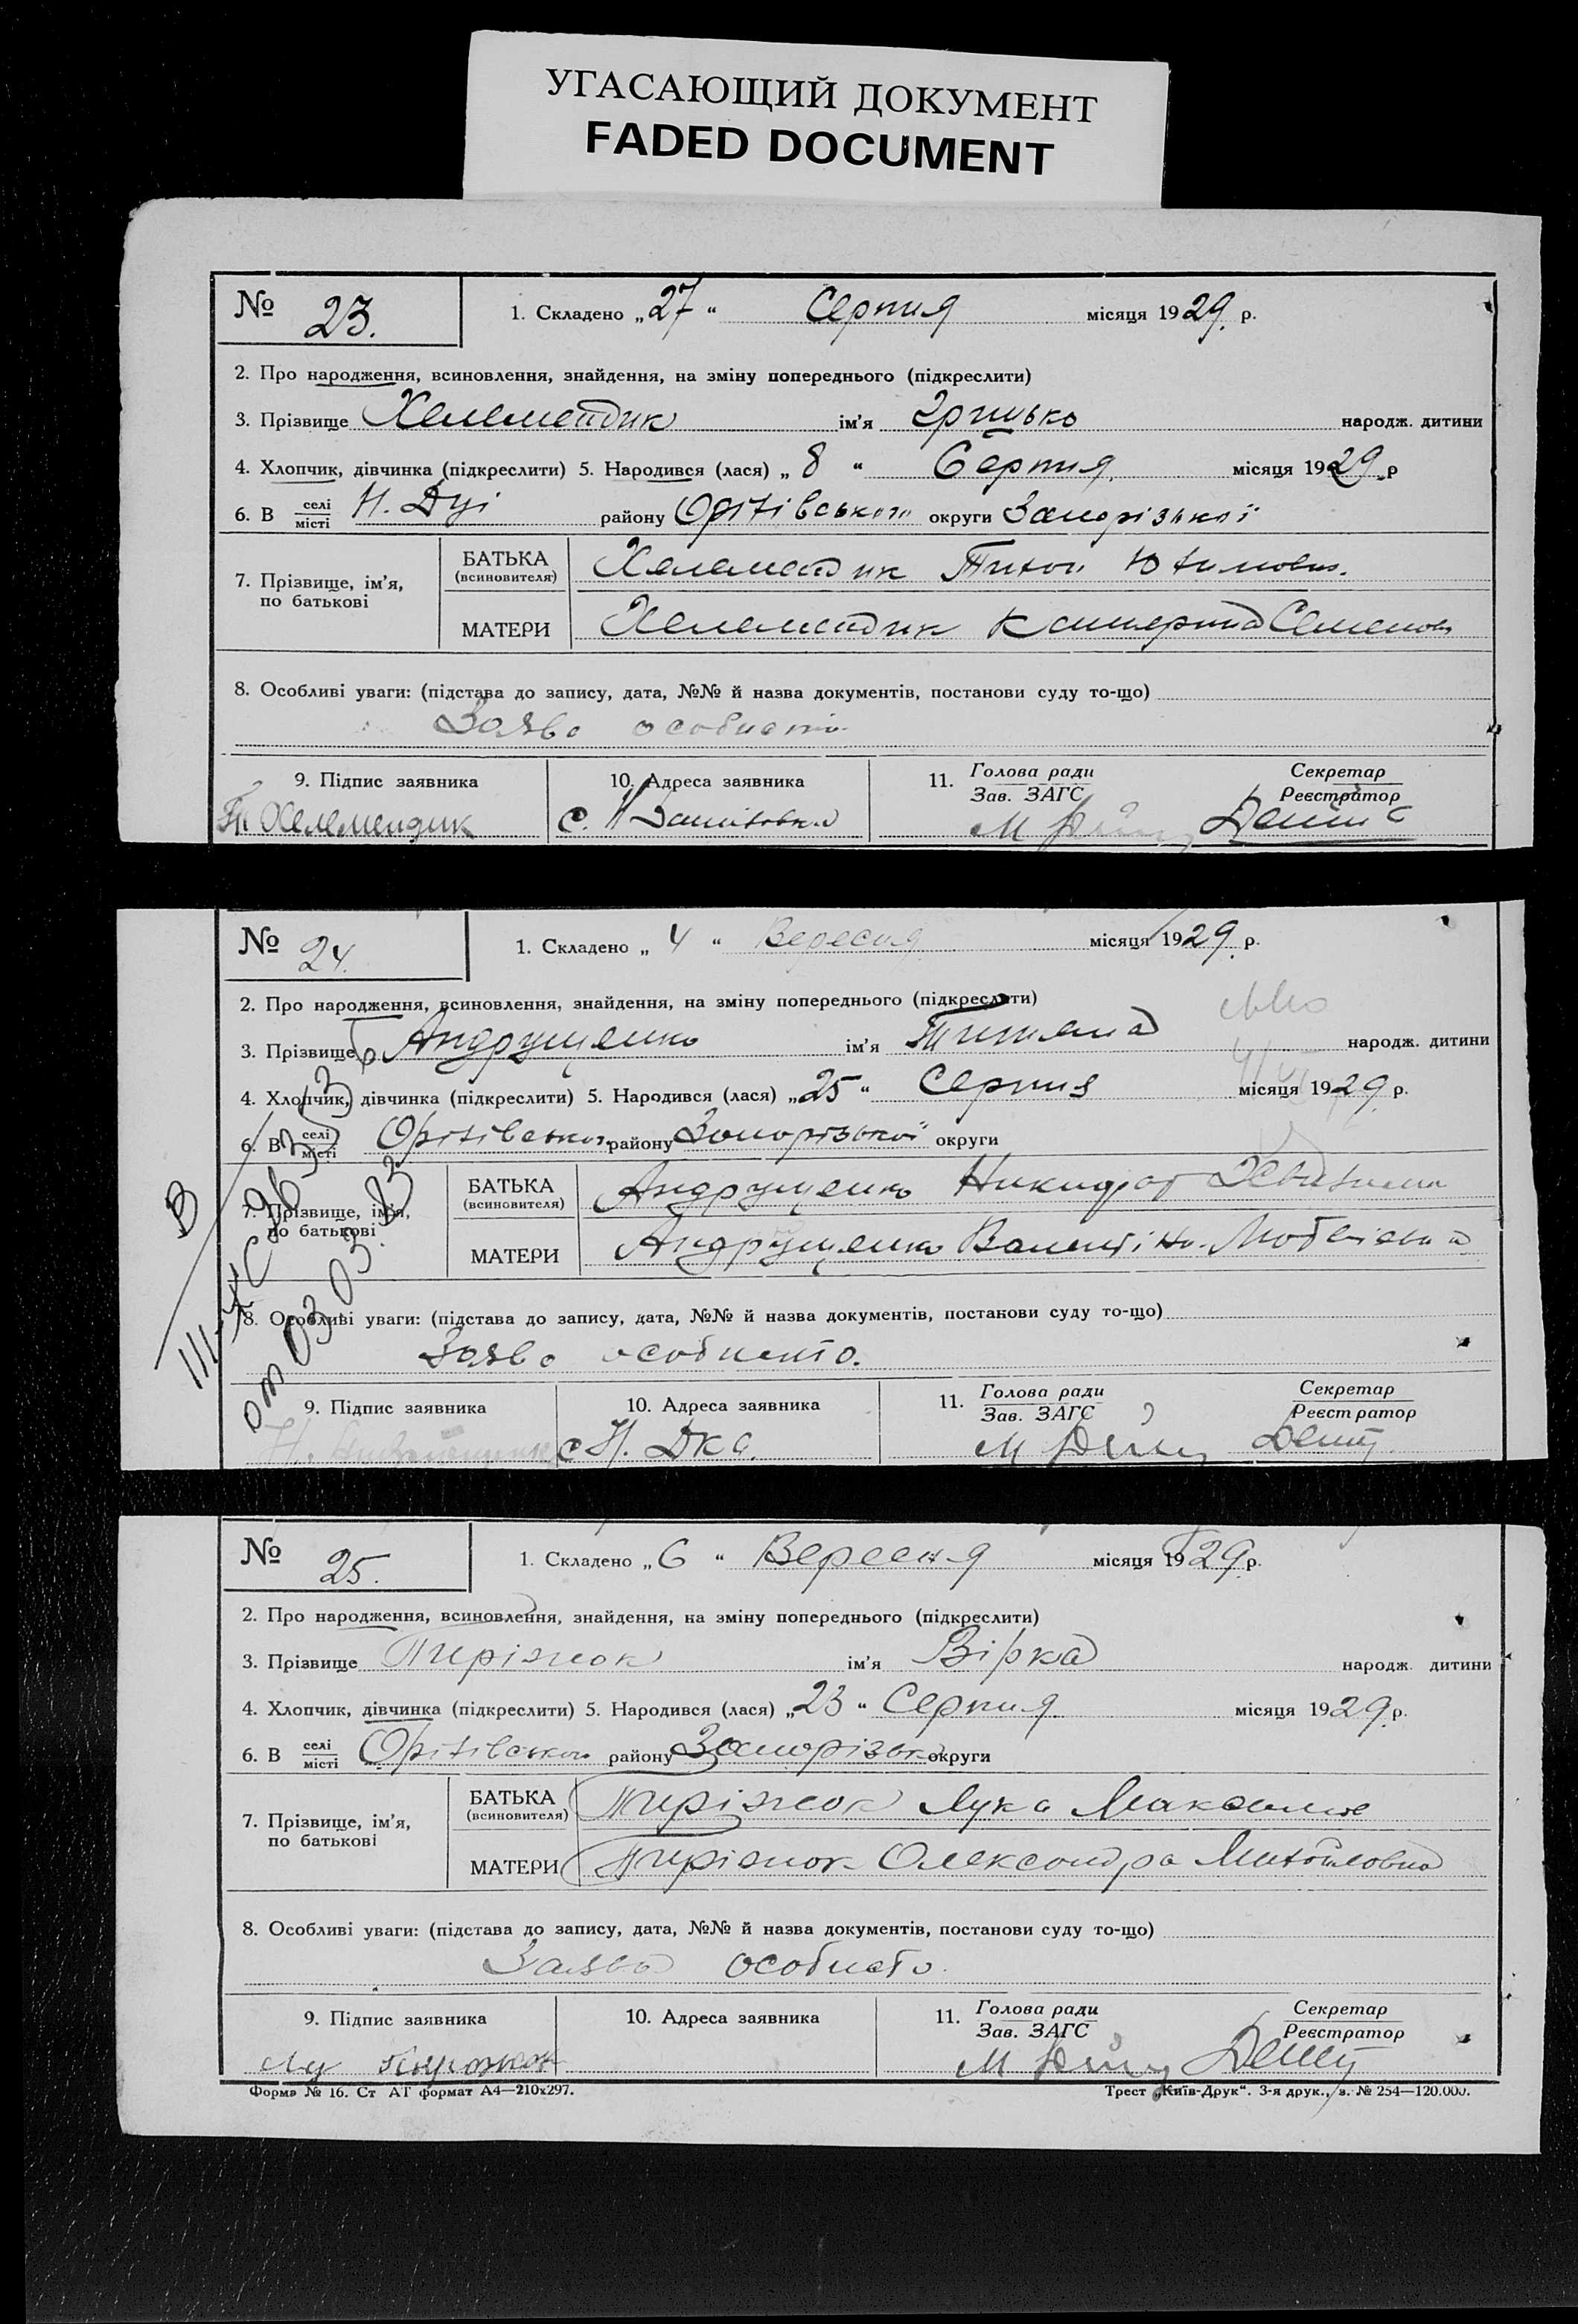 УГАСАЮЩИЙ ДОКУМЕНТ
FADED DOCUMENT
№ 23. 1. Складено „27“ Серпня місяця 1929. р.
2. Про народження, всиновлення, знайдення, на зміну попереднього (підкреслити)
3. Прізвище Хелемендик ім'я Грицько народж. дитини
4. Хлопчик, дівчинка (підкреслити) 5. Народився (лася) „8“ Серпня місяця 1929 р
6. В селі місті Н. Д-ці району Оріхівського округи Запорізької
7. Прізвище, ім'я, по батькові
БАТЬКА (всиновителя) Хелемендик Тихон Юхимович.
МАТЕРИ Хелемендик Катерина Семенов
8. Особливі уваги: (підстава до запису, дата, №№ й назва документів, постанови суду то-що)
Заява особисто
9. Підпис заявника 10. Адреса заявника 11. Голова ради Зав. ЗАГС Секретар Реєстратор
Т. Хелемендик с. Н Данилівка
№ 24. 1. Складено „4“ Вересня місяця 1929. р.
2. Про народження, всиновлення, знайдення, на зміну попереднього (підкреслити)
3. Прізвище Андрущенко ім'я Титяна народж. дитини
4. Хлопчик, дівчинка (підкреслити) 5. Народився (лася) „25“ Серпня місяця 1929. р.
6. В селі місті Оріхівського району Запорізької округи
7. Прізвище, ім'я, по батькові
БАТЬКА (всиновителя) Андрущенко Никифор
МАТЕРИ Андрущенко Валентіна
8. Особливі уваги: (підстава до запису, дата, №№ й назва документів, постанови суду то-що)
Заява особисто.
9. Підпис заявника 10. Адреса заявника 11. Голова ради Зав. ЗАГС Секретар Реєстратор
с Н. Д-ка.
№ 25. 1. Складено „6“ Вересня місяця 1929. р.
2. Про народження, всиновлення, знайдення, на зміну попереднього (підкреслити)
3. Прізвище Пиріжок ім'я Вірка народж. дитини
4. Хлопчик, дівчинка (підкреслити) 5. Народився (лася) „23“ Серпня місяця 1929. р.
6. В селі місті Оріхівського району Запорізьк округи
7. Прізвище, ім'я, по батькові
БАТЬКА (всиновителя) Пиріжок Лука Максимов
МАТЕРИ Пиріжок Олександра Михайловна
8. Особливі уваги: (підстава до запису, дата, №№ й назва документів, постанови суду то-що)
Заява особисто.
9. Підпис заявника 10. Адреса заявника 11. Голова ради Зав. ЗАГС Секретар Реєстратор
Форма № 16. Ст АТ формат А4—210х297. Трест „Київ-Друк“. 3-я друк., з. № 254—120.000.